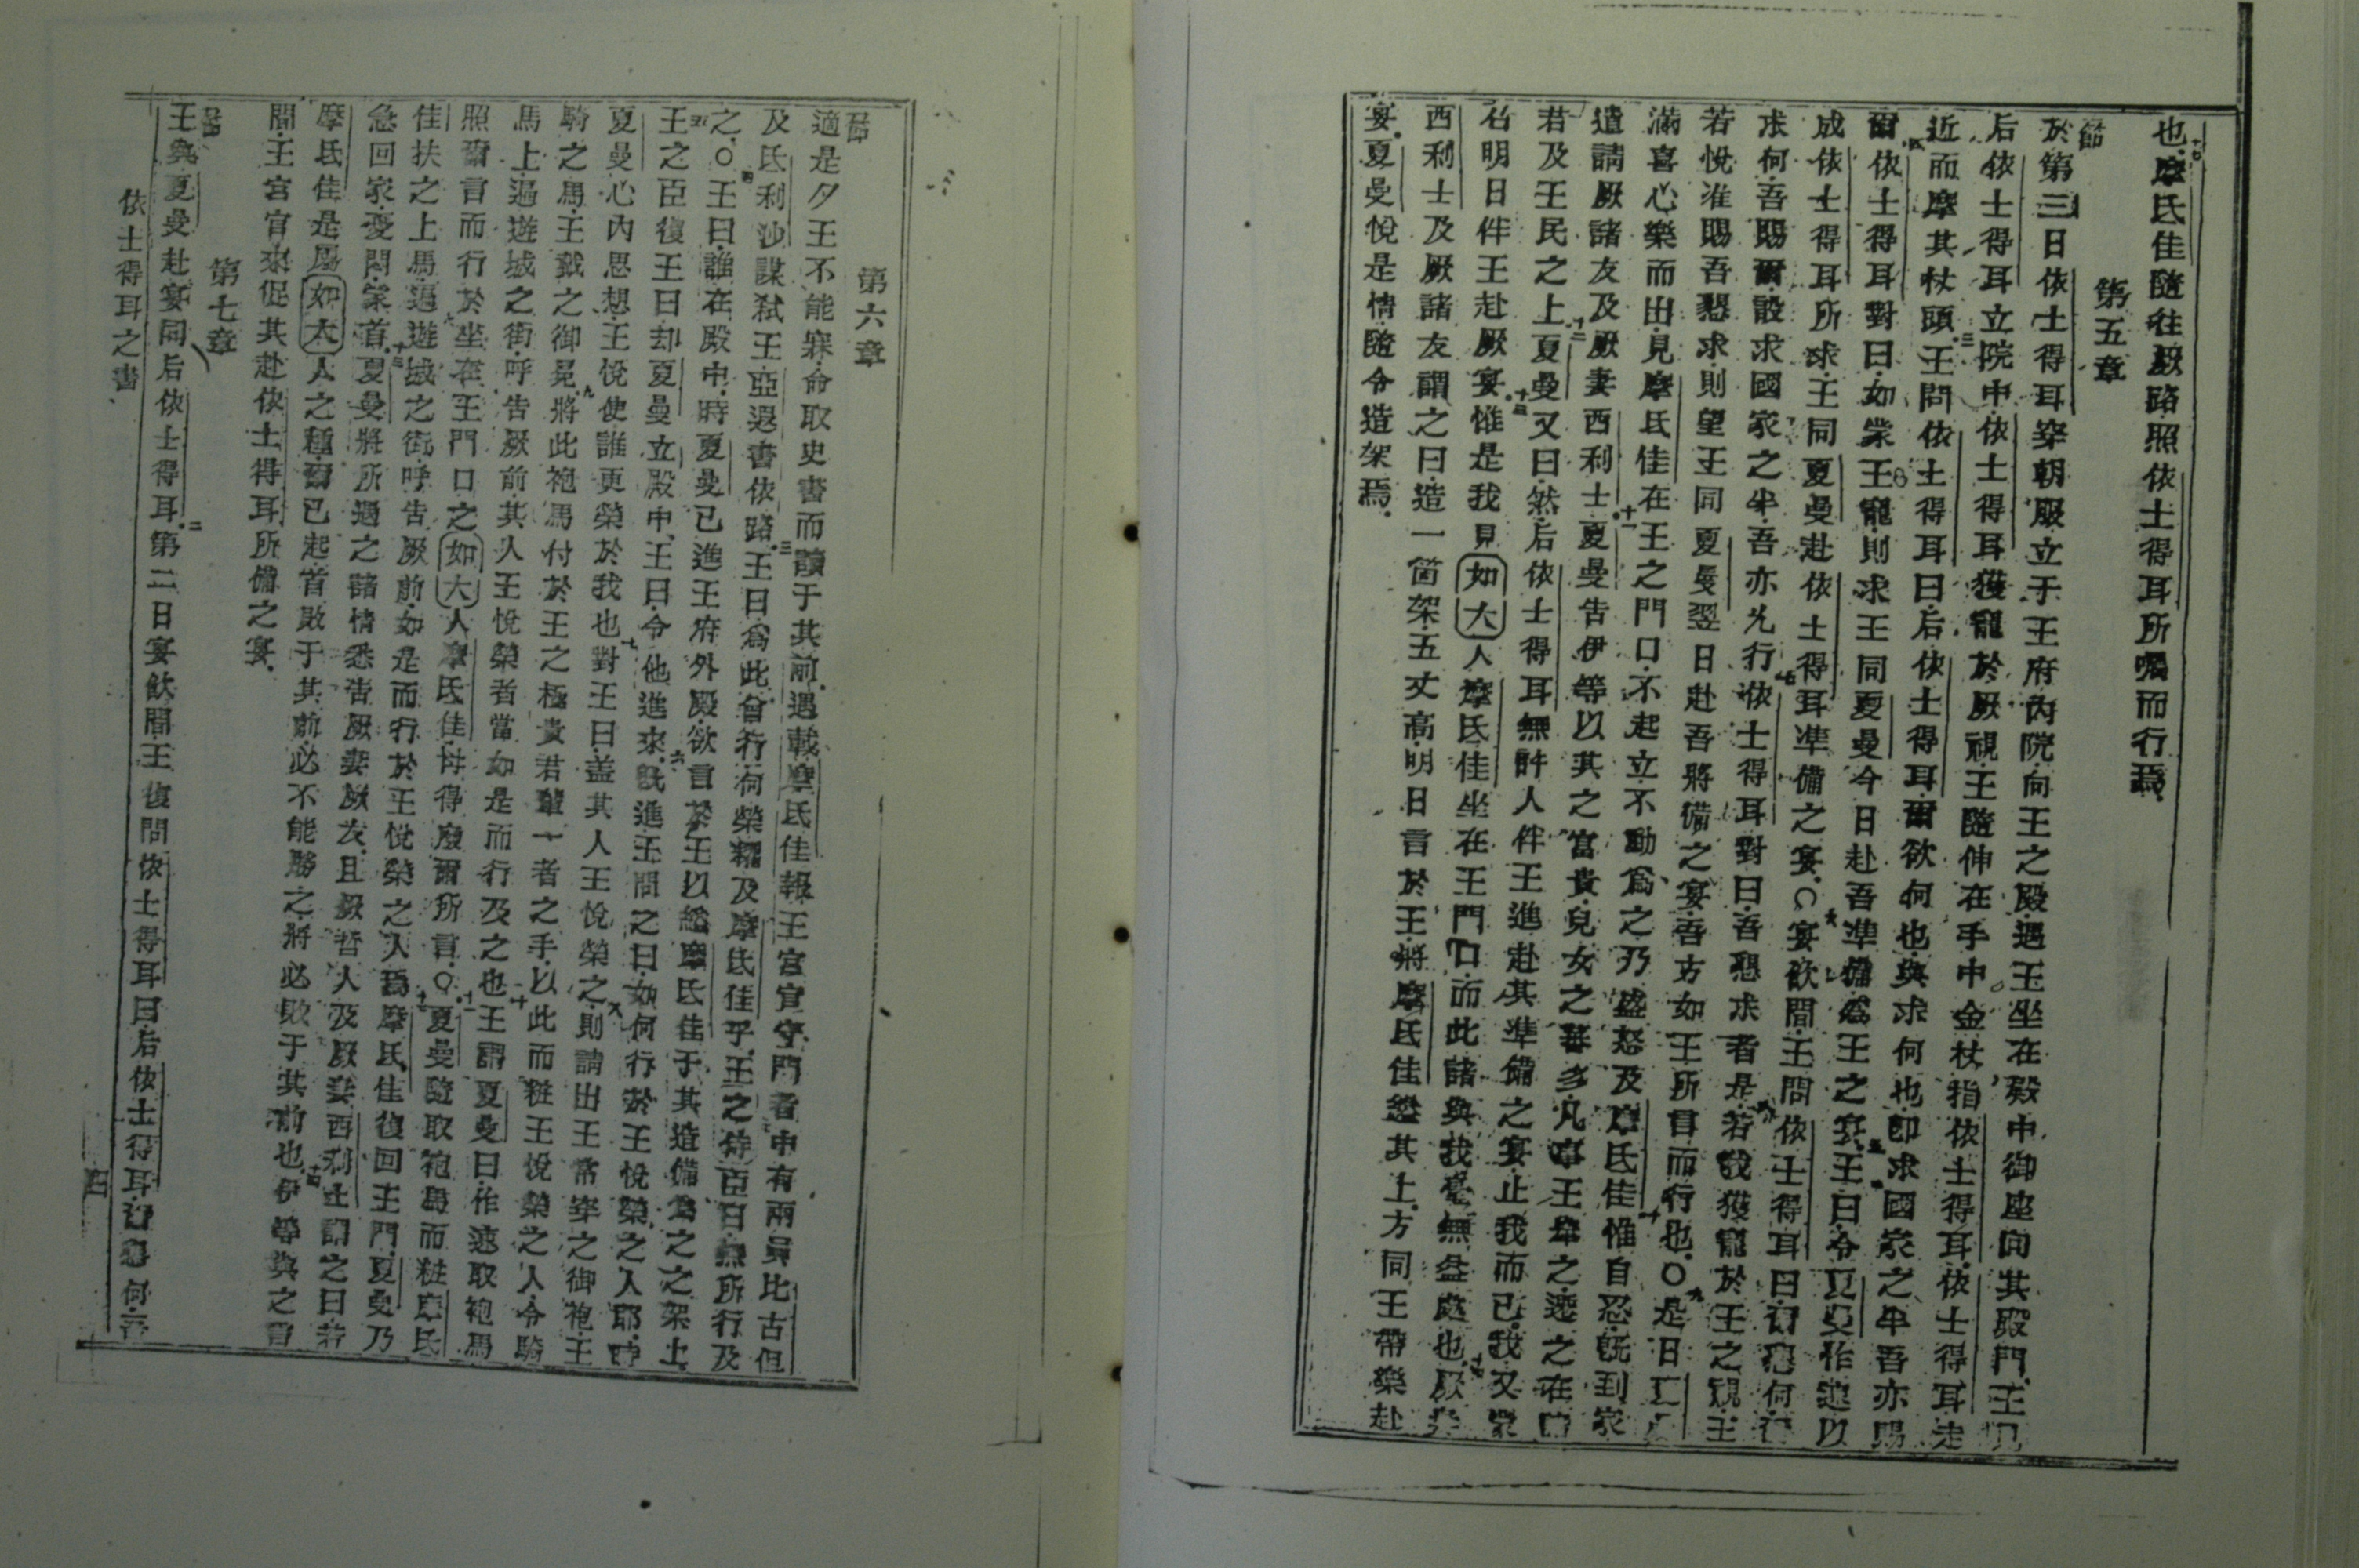 也摩氏佳隨往厥路照依士得耳所囑而行焉
第五章
節
於第三日依士得耳穿朝服立于王府內院向王之殿遇王坐在殿中御座向其殿門王見
后依士得耳立院中依士得耳獲寵於厥視王隨伸在手中金杖指依士得耳依士得耳走
近而摩其杖頭三王問依士得耳曰后依士得耳爾欲何也與求何也即求國家之半吾亦賜
爾四依士得耳對曰如蒙王寵則求王同夏曼今日赴吾準備為王之宴五王曰令夏曼作速以
成依士得耳所求王同夏曼赴依士得耳準備之宴○六宴飲間王問依士得耳曰爾懇何
求何吾賜爾設求國家之半吾亦允行七依士得耳對曰吾懇求者是八若我獲寵於王之視王
若悅准賜吾懇求則望王同夏曼翌日赴吾將備之宴吾方如王所言而行也○九是日夏曼
滿喜心樂而出見摩氏佳在王之門口不起立不動為之乃盛怒及摩氏佳十惟自忍既到家
遣請厥諸友及厥妻西利士十一夏曼告伊等以其之富貴兒女之蕃多凡事王舉之逐之在
君及王民之上十二夏曼又曰然后依士得耳無許人伴王進赴其準備之宴止我而已我又蒙
召明日伴王赴厥宴十三惟是我見如大人摩氏佳坐在王門口而此諸與我毫無益處也十四厥妻
西利士及厥諸友謂之曰造一箇架五丈高明日言於王將摩氏佳縊其上方同王帶樂赴
宴夏曼悅是情隨令造架焉
第六章
節
適是夕王不能寐命取史書而讀于其前遇載摩氏佳報王宮官守門者中有兩員比古但
及氏利沙謀弒王亞退書依路三王曰為此曾行何榮耀及摩氏佳乎王之侍臣曰無所行及
之○四王曰誰在殿中時夏曼已進王府外殿欲言於王以縊摩氏佳于其造備為之之架上
五王之臣復王曰却夏曼立殿中王曰令他進來六既進王問之曰如何行於王悅榮之人耶時
夏曼心內思想王悅使誰更榮於我也七對王曰蓋其人王悅榮之八則請出王常穿之御袍王
騎之馬王戴之御冕九將此袍馬付於王之極貴君輩一者之手以此而粧王悅榮之人令騎
馬上遍遊城之街呼告厥前其人王悅榮者當如是而行及之也十王謂夏曼曰作速取袍馬
照爾言而行於坐在王門口之如大人摩氏佳毋得廢爾所言○十一夏曼隨取袍馬而粧摩氏
佳扶之上馬遍遊城之街呼告厥前如是而行於王悅榮之人焉十二摩氏佳復回王門夏曼乃
急回家憂悶蒙首十三夏曼將所遇之諸情悉告厥妻厥友且厥哲人及厥妻西利士謂之曰若
摩氏佳是屬如大人之種爾已起首敗于其前必不能勝之將必敗于其前也十四伊等與之言
間王宮官來促其赴依士得耳所備之宴
第七章
節
王與夏曼赴宴同后依士得耳二第二日宴飲間王復問依士得耳曰后依士得耳爾懇何
依士得耳之書
四